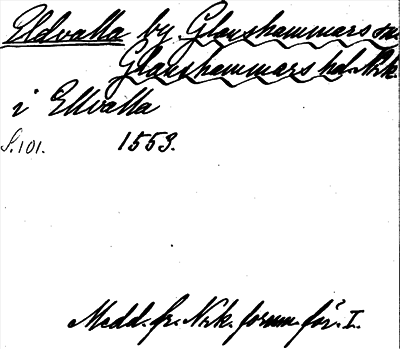 Eldvalla by Glanshammars sn.
Glanshammars hd. Nrk.
i Elluatta
S. 101. 1553.
Medd. fr. Nrk. fornm. för. I.